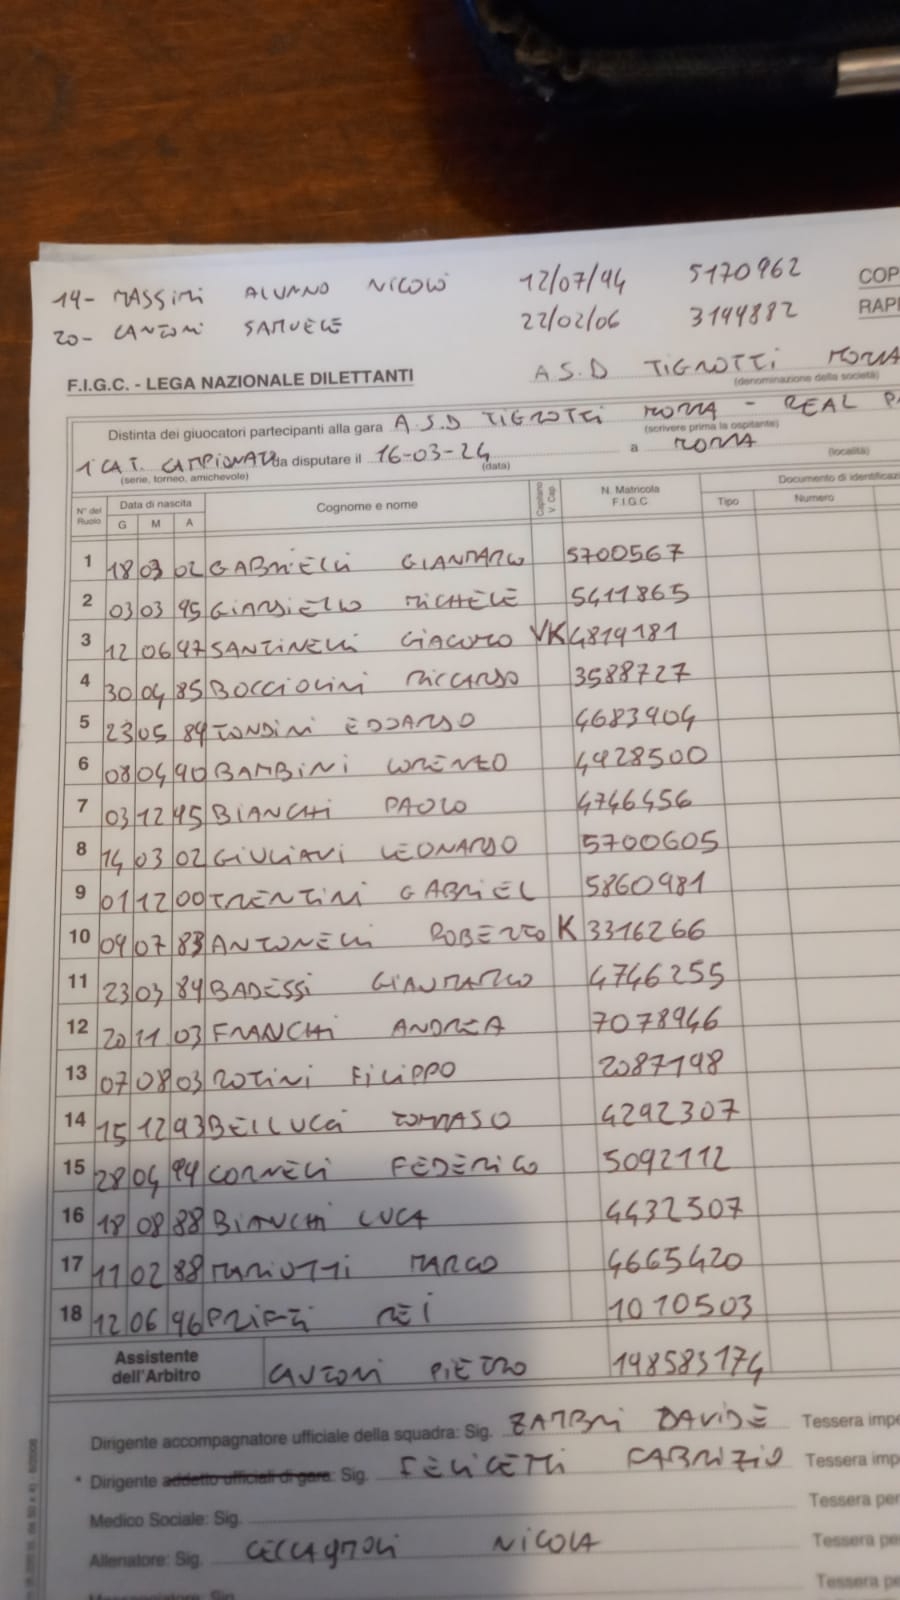 14- MASSIMI ALUNNO NICOLÒ 12/07/94 5170962 COP
20- CANTONI SAMUELE 22/02/06 3194882 RAPI
F.I.G.C. - LEGA NAZIONALE DILETTANTI A.S.D TIGROTTI MORRA
(denominazione della società)
Distinta dei giuocatori partecipanti alla gara A.S.D TIGROTTI MORRA - REAL PA
(scrivere prima la ospitante)
1 CAT. CAMPIONATO da disputare il 16-03-24 a MORRA
(serie, torneo, amichevole) (data) (località)
N° del Ruolo Data di nascita G M A Cognome e nome Capitano V. Cap. N. Matricola F.I.G.C Documento di identificazi
Tipo Numero
1 18 03 02 GABRIELLI GIANMARCO 5700567
2 03 03 95 MICHELE 5411865
3 12 06 97 SANTINELLI GIACOMO VK 4819181
4 30 04 85 BOCCIOLINI RICCARDO 3588727
5 23 05 89 TONDINI EDOARDO 4683904
6 08 04 90 BAMBINI LORENZO 4928500
7 03 12 95 BIANCHI PAOLO 4746456
8 14 03 02 LEONARDO 5700605
9 01 12 00 TRENTINI GABRIEL 5860981
10 09 07 83 ANTONELLI ROBERTO K 3316266
11 23 03 89 BADESSI GIANMARCO 4746255
12 20 11 03 FRANCHI ANDREA 7078946
13 07 08 03 ROTINI FILIPPO 2087198
14 15 12 93 BELLUCCI TOMMASO 4292307
15 28 04 94 CORNELI FEDERICO 5092112
16 18 08 88 BIANCHI LUCA 4432507
17 11 02 88 MARIOTTI MARCO 4665420
18 12 06 96 PRIFTI REI 1010503
Assistente dell'Arbitro CANTONI PIETRO 148583174
Dirigente accompagnatore ufficiale della squadra: Sig. DAVIDE Tessera impe
* Dirigente addetto ufficiali di gara: Sig. FELICETTI FABRIZIO Tessera imp
Medico Sociale: Sig. Tessera per
Allenatore: Sig. CECCAGNOLI NICOLA Tessera pe
Tessera pe